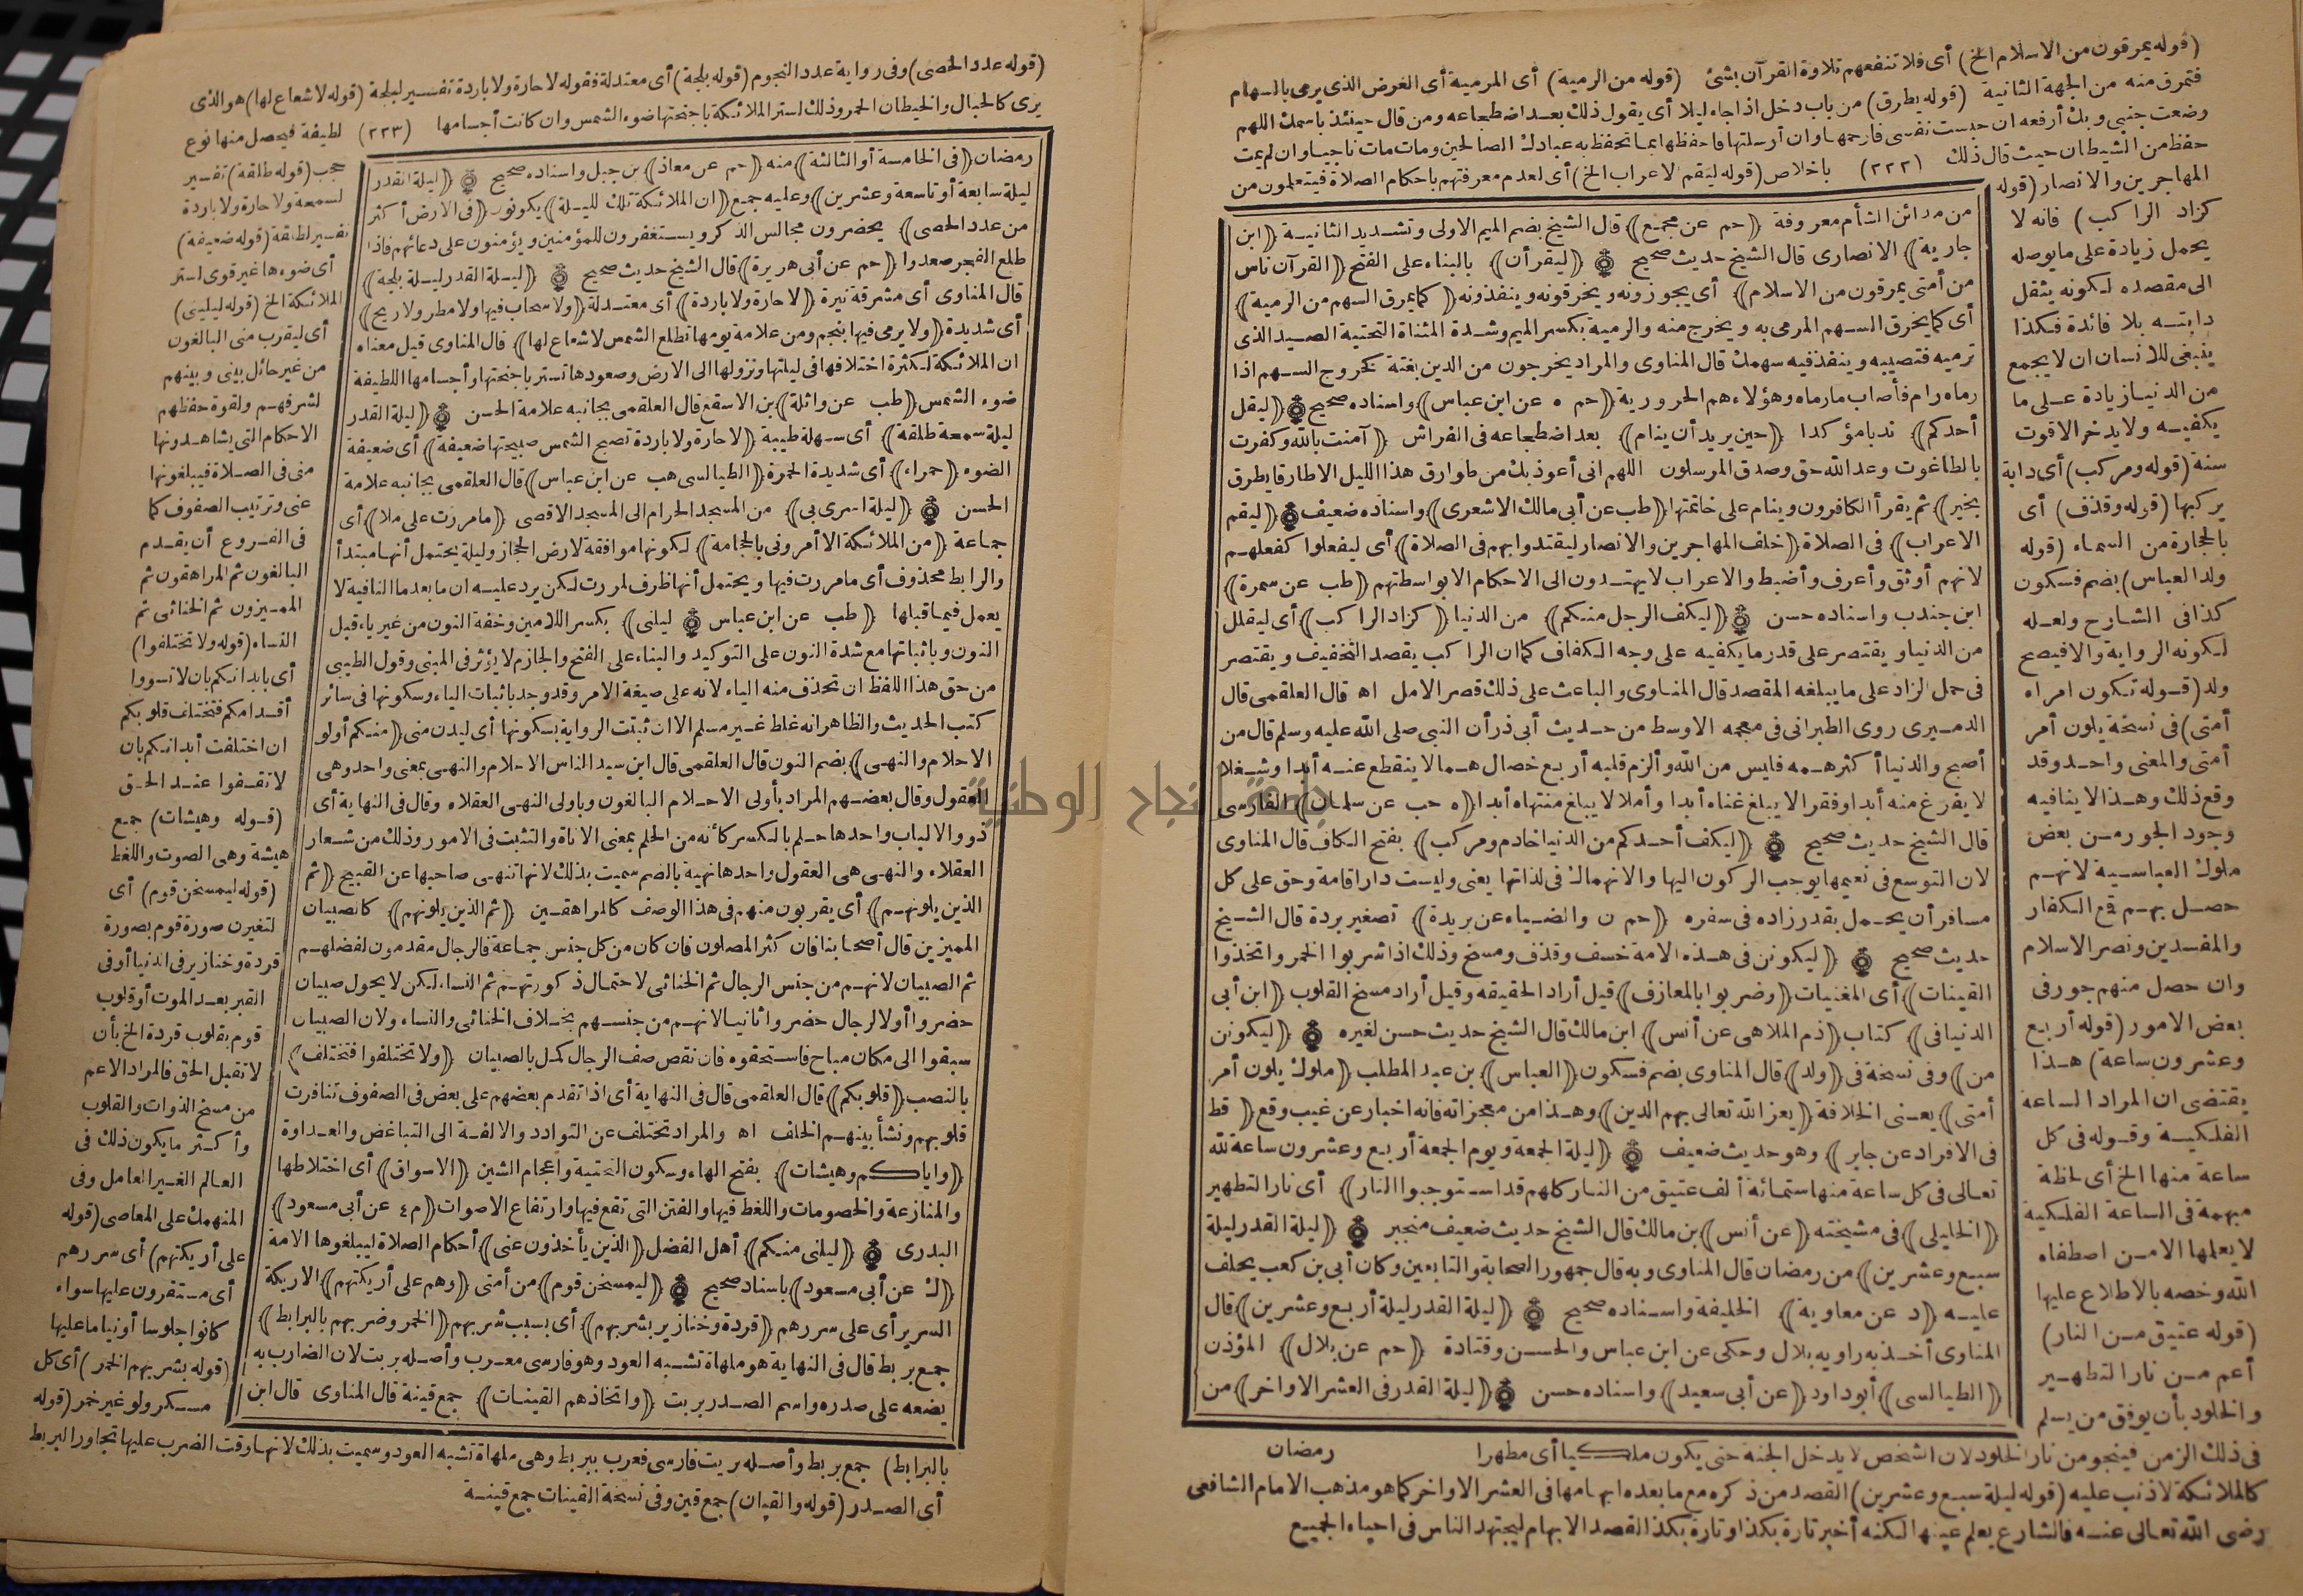 (قوله يمرقون من الاسلام الخ) أى فلا تنفعهم تلاوة القرآن بشئ (قوله من الرمية) أى المرمية أى الغرض الذى يرمى بالسهام
فتمرق منه من الجهة الثانية (قوله يطرق) من باب دخل اذا جاء ليلا أى يقول ذلك بعد اضطجاعه ومن قال حينئذ باسمك اللهم
وضعت جنبى وبك أرفعه ان حبست نفسى فارحمها وان أرسلتها فاحفظها بما تحفظ به عبادك الصالحين ومات مات ناجيا وان لم يمت
حفظ من الشيطان حيث قال ذلك (٢٢٢) باخلاص (قوله ليقم الاعراب الخ) أى لعدم معرفتهم باحكام الصلاة فيتعلمون من
المهاجرين والانصار (قوله
كزاد الراكب) فانه لا
يحمل زيادة على ما يوصله
الى مقصده لكونه يثقل
دابته بلا فائدة فكذا
ينبغى للانسان ان لا يجمع
من الدنيا زيادة على ما
يكفيه ولا يدخر الا قوت
سنة (قوله ومركب) أى دابة
يركبها (قوله وقذف) أى
بالحجارة من السماء (قوله
ولد العباس) بضم فسكون
كذا فى الشارح ولعله
لكونه الرواية والا فيصح
ولد (قوله تكون امراء
أمتى) فى نسخة يلون أمر
أمتى والمعنى واحد وقد
وقع ذلك وهذا لا ينافيه
وجود الجور من بعض
ملوك العباسية لانهم
حصل بهم قمع الكفار
والمفسدين ونصر الاسلام
وان حصل منهم جور فى
بعض الامور (قوله أربع
وعشرون ساعة) هذا
يقتضى ان المراد الساعة
الفلكية وقوله فى كل
ساعة منها الخ أى لحظة
مبهمة فى الساعة الفلكية
لا يعلمها الا من اصطفاه
الله وخصه بالاطلاع عليها
(قوله عتيق من النار)
أعم من نار التطهير
والخلود بأن يوفق من يسلم
من مدائن الشأم معروفة (حم عن مجمع) قال الشيخ بضم الميم الاولى وتشديد الثانية (ابن
جارية) الانصارى قال الشيخ حديث صحيح (ليقرأن) بالبناء على الفتح (القرآن ناس
من أمتى يمرقون من الاسلام) أى يجوزونه ويخرقونه وينفذونه (كما يمرق السهم من الرمية)
أى كما يخرق السهم المرمى به ويخرج منه والرمية بكسر الميم وشدة المثناة التحتية الصيد الذى
ترميه فتصيبه وينفذ فيه سهمك قال المناوى والمراد يخرجون من الدين بغتة كخروج السهم اذا
رماه رام فأصاب ما رماه وهؤلاء هم الحرورية (حم ه عن ابن عباس) واسناده صحيح (ليقل
أحدكم) ندبا مؤكدا (حين يريد أن ينام) بعد اضطجاعه فى الفراش (آمنت بالله وكفرت
بالطاغوت وعد الله حق وصدق المرسلون اللهم انى أعوذ بك من طوارق هذا الليل الا طارقا يطرق
بخير) ثم يقرأ الكافرون وينام على خاتمتها (طب عن أبى مالك الاشعرى) واسناده ضعيف (ليقم
الاعراب) فى الصلاة (خلف المهاجرين والانصار ليقتدوا بهم فى الصلاة) أى ليفعلوا كفعلهم
لانهم أوثق وأعرف وأضبط والاعراب لا يهتدون الى الاحكام الا بواسطتهم (طب عن سمرة)
ابن جندب واسناده حسن (ليكف الرجل منكم) من الدنيا (كزاد الراكب) أى ليقلل
من الدنيا ويقتصر على قدر ما يكفيه على وجه الكفاف كما ان الراكب يقصد التخفيف ويقتصر
فى حمل الزاد على ما يبلغه المقصد قال المناوى والباعث على ذلك قصر الامل اه قال العلقمى قال
الدميرى روى الطبرانى فى معجمه الاوسط من حديث أبى ذر أن النبى صلى الله عليه وسلم قال من
أصبح والدنيا أكثر همه فليس من الله وألزم قلبه أربع خصال هما لا ينقطع عنه أبدا وشغلا
لا يفرغ منه أبدا وفقرا لا يبلغ غناه أبدا وأملا لا يبلغ منتهاه أبدا (ه حب عن سلمان) الفارسى
قال الشيخ حديث صحيح (ليكف أحدكم من الدنيا خادم ومركب) بفتح الكاف قال المناوى
لان التوسع فى نعيمها يوجب الركون اليها والانهماك فى لذاتها يعنى وليست دار اقامة وحق على كل
مسافر أن يحمل بقدر زاده فى سفره (حم ن والضياء عن بريدة) تصغير بردة قال الشيخ
حديث صحيح (ليكونن فى هذه الامة خسف وقذف ومسخ وذلك اذا شربوا الخمر واتخذوا
القينات) أى المغنيات (وضربوا بالمعازف) قيل أراد الحقيقة وقيل أراد مسخ القلوب (ابن أبى
الدنيا فى) كتاب (ذم الملاهى عن أنس) ابن مالك قال الشيخ حديث حسن لغيره (ليكونن
من) وفى نسخة فى (ولد) قال المناوى بضم فسكون (العباس) بن عبد المطلب (ملوك يلون أمر
أمتى) يعنى الخلافة (يعز الله تعالى بهم الدين) وهذا من معجزاته فانه اخبار عن غيب وقع (قط
فى الافراد عن جابر) وهو حديث ضعيف (ليلة الجمعة ويوم الجمعة أربع وعشرون ساعة لله
تعالى فى كل ساعة منها ستمائة ألف عتيق من النار كلهم قد استوجبوا النار) أى نار التطهير
(الخليلى) فى مشيخته (عن أنس) بن مالك قال الشيخ حديث ضعيف منجبر (ليلة القدر ليلة
سبع وعشرين) من رمضان قال المناوى وبه قال جمهور الصحابة والتابعين وكان أبى بن كعب يحلف
عليه (د عن معاوية) الخليفة واسناده صحيح (ليلة القدر ليلة أربع وعشرين) قال
المناوى أخذ به راويه بلال وحكى عن ابن عباس والحسن وقتادة (حم عن بلال) المؤذن
(الطيالسى) أبو داود (عن أبى سعيد) واسناده حسن (ليلة القدر فى العشر الاواخر) من
رمضان
فى ذلك الزمن فينجو من نار الخلود لان الشخص لا يدخل الجنة حتى يكون ملكيا أى مطهرا
كالملائكة لا ذنب عليه (قوله ليلة سبع وعشرين) القصد من ذكره مع ما بعده ابهامها فى العشر الاواخر كما هو مذهب الامام الشافعى
رضى الله تعالى عنه فالشارع يعلم عينها لكنه أخبر تارة بكذا وتارة بكذا لقصد الابهام ليجتهد الناس فى احياء الجميع
(قوله عدد الحصى) وفى رواية عدد النجوم (قوله بلجة) أى معتدلة فقوله لا حارة ولا باردة تفسير لبلجة (قوله لا شعاع لها) هو الذى
يرى كالحبال والخيطان الحمر وذلك لستر الملائكة باجنحتها ضوء الشمس وان كانت أجسامها (٢٢٣) لطيفة فيحصل منها نوع
رمضان (فى الخامسة أو الثالثة) منه (حم عن معاذ) بن جبل واسناده صحيح (ليلة القدر
ليلة سابعة أو تاسعة وعشرين) وعليه جمع (ان الملائكة تلك الليلة) يكونون (فى الارض أكثر
من عدد الحصى) يحضرون مجالس الذكر ويستغفرون للمؤمنين ويؤمنون على دعائهم فاذا
طلع الفجر صعدوا (حم عن أبى هريرة) قال الشيخ حديث صحيح (ليلة القدر ليلة بلجة)
قال المناوى أى مشرقة نيرة (لا حارة ولا باردة) أى معتدلة (ولا سحاب فيها ولا مطر ولا ريح)
أى شديدة (ولا يرمى فيها بنجم ومن علامة يومها تطلع الشمس لا شعاع لها) قال المناوى قيل معناه
ان الملائكة لكثرة اختلافها فى ليلتها ونزولها الى الارض وصعودها تستر باجنحتها وأجسامها اللطيفة
ضوء الشمس (طب عن واثلة) بن الاسقع قال العلقمى بجانبه علامة الحسن (ليلة القدر
ليلة سمحة طلقة) أى سهلة طيبة (لا حارة ولا باردة تصبح الشمس صبيحتها ضعيفة) أى ضعيفة
الضوء (حمراء) أى شديدة الحمرة (الطيالسى هب عن ابن عباس) قال العلقمى بجانبه علامة
الحسن (ليلة اسرى بى) من المسجد الحرام الى المسجد الاقصى (ما مررت على ملا) أى
جماعة (من الملائكة الا أمرونى بالحجامة) لكونها موافقة لارض الحجاز وليلة يحتمل أنها مبتدأ
والرابط محذوف أى ما مررت فيها ويحتمل أنها ظرف لمررت لكن يرد عليه ان ما بعد ما النافية لا
يعمل فيما قبلها (طب عن ابن عباس ليلنى) بكسر اللامين وخفة النون من غير ياء قبل
النون وباثباتها مع شدة النون على التوكيد والبناء على الفتح والجازم لا يؤثر فى المبنى وقول الطيبى
من حق هذا اللفظ ان تحذف منه الياء لانه على صيغة الامر وقد وجد باثبات الياء وسكونها فى سائر
كتب الحديث والظاهر انه غلط غير مسلم الا ان ثبتت الرواية بسكونها أى ليدن منى (منكم أولو
الاحلام والنهى) بضم النون قال العلقمى قال ابن سيد الناس الاحلام والنهى بمعنى واحد وهى
العقول وقال بعضهم المراد بأولى الاحلام البالغون وباولى النهى العقلاء وقال فى النهاية أى
ذوو الالباب واحدها حلم بالكسر كأنه من الحلم بمعنى الاناة والتثبت فى الامور وذلك من شعار
العقلاء والنهى هى العقول واحدها نهية بالضم سميت بذلك لانها تنهى صاحبها عن القبيح (ثم
الذين يلونهم) أى يقربون منهم فى هذا الوصف كالمراهقين (ثم الذين يلونهم) كالصبيان
المميزين قال أصحابنا فان كثر المصلون فان كان من كل جنس جماعة فالرجال مقدمون لفضلهم
ثم الصبيان لانهم من جنس الرجال ثم الخناثى لاحتمال ذكورتهم ثم النساء لكن لا يحول صبيان
حضروا أولا لرجال حضروا ثانيا لانهم من جنسهم بخلاف الخناثى والنساء ولان الصبيان
سبقوا الى مكان مباح فاستحقوه فان نقص صف الرجال كمل بالصبيان (ولا تختلفوا فتختلف)
بالنصب (قلوبكم) قال العلقمى قال فى النهاية أى اذا تقدم بعضهم على بعض فى الصفوف تنافرت
قلوبهم ونشأ بينهم الخلف اه والمراد تختلف عن التوادد والالفة الى التباغض والعداوة
(واياكم وهيشات) بفتح الهاء وسكون التحتية واعجام الشين (الاسواق) أى اختلاطها
والمنازعة والخصومات واللغط فيها والفتن التى تقع فيها وارتفاع الاصوات (م ٤ عن أبى مسعود)
البدرى (ليلنى منكم) أهل الفضل (الذين يأخذون عنى) أحكام الصلاة ليبلغوها الامة
(ك عن أبى مسعود) باسناد صحيح (ليمسخن قوم) من أمتى (وهم على أريكتهم) الاريكة
السرير أى على سررهم (قردة وخنازير بشربهم) أى بسبب شربهم (الخمر وضربهم بالبرابط)
جمع بربط قال فى النهاية هو ملهاة تشبه العود وهو فارسى معرب وأصله بربت لان الضارب به
يضعه على صدره واسم الصدر بربت (واتخاذهم القينات) جمع قينة قال المناوى قال ابن
حجب (قوله طلقة) تفسير
لسمحة ولا حارة ولا باردة
تفسير لطلقة (قوله ضعيفة)
أى ضوءها غير قوى لستر
الملائكة الخ (قوله ليلينى)
أى ليقرب منى البالغون
من غير حائل بينى وبينهم
لشرفهم ولقوة حفظهم
الاحكام التى يشاهدونها
منى فى الصلاة فيبلغونها
عنى وترتيب الصفوف كما
فى الفروع أن يقدم
البالغون ثم المراهقون ثم
المميزون ثم الخناثى ثم
النساء (قوله ولا تختلفوا)
أى بابدانكم بان لا تسووا
أقدامكم فتختلف قلوبكم
ان اختلفت أبدانكم بان
لا تقفوا عند الحق
(قوله وهيشات) جمع
هيشة وهى الصوت واللغط
(قوله ليمسخن قوم) أى
لتغيرن صورة قوم بصورة
قردة وخنازير فى الدنيا أو فى
القبر بعد الموت أو قلوب
قوم بقلوب قردة الخ بأن
لا تقبل الحق فالمراد الاعم
من مسخ الذوات والقلوب
وأكثر ما يكون ذلك فى
العالم الغير العامل وفى
المنهمك على المعاصى (قوله
على أريكتهم) أى سررهم
أى مستقرون عليها سواء
كانوا جلوسا أو نياما عليها
(قوله بشربهم الخمر) أى كل
مسكر ولو غير خمر (قوله
بالبرابط) جمع بربط وأصله بربت فارسى فعرب ببربط وهى ملهاة تشبه العود وسميت بذلك لانها وقت الضرب عليها تجاور البربط
أى الصدر (قوله والقيان) جمع قين وفى نسخة القينات جمع قينة
جامعة النجاح الوطنية